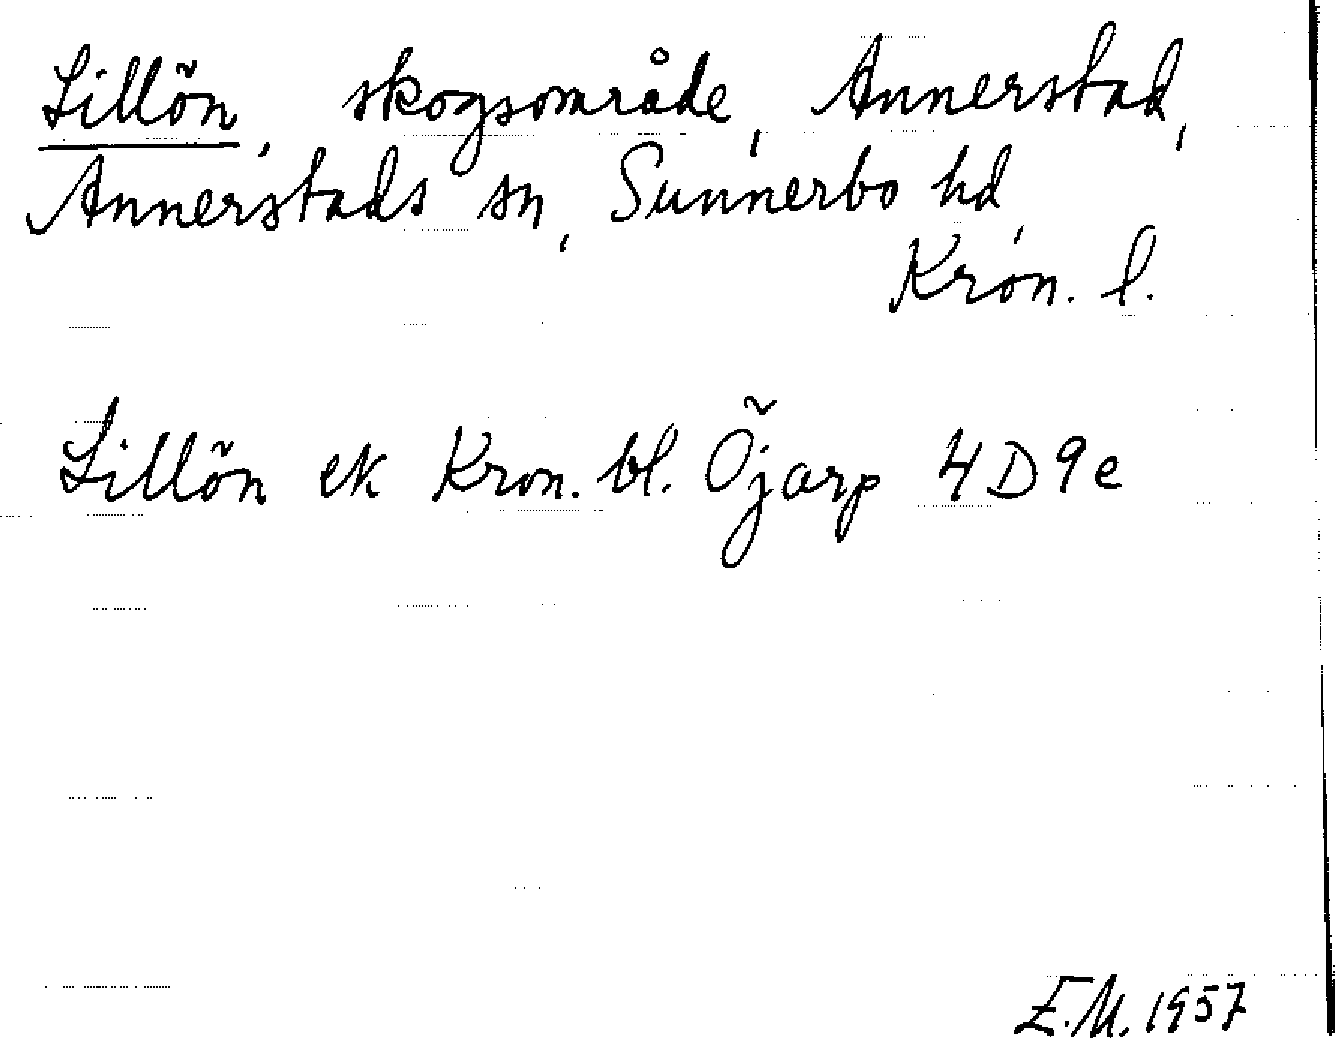 Lillön, skogsområde, Annerstad,
Annerstads sn, Sunnerbo hd,
Kron. l.
Lillön ek Kron. bl. Öjarp 4D9e
E.M. 1957